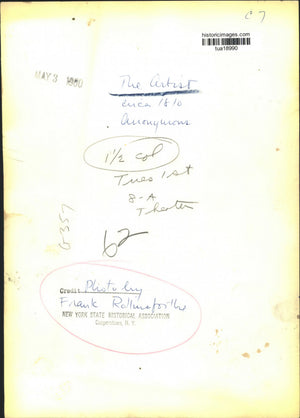 C 7
historicimages.com
tua18990
MAY 3 1960
The Artist
circa 1810
Anonymous
1½ col
Tues 1st
8-A
Theater
62
Credit Photo by
Frank
NEW YORK STATE HISTORICAL ASSOCIATION
Cooperstown, N. Y.